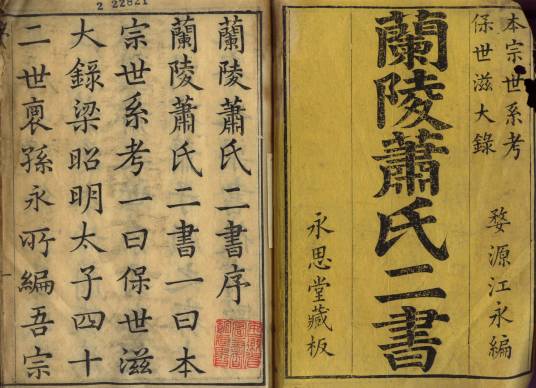 本宗世系考
保世滋大錄
婺源江永編
蘭陵蕭氏二書
永思堂藏板
2 22821
蘭陵蕭氏二書序
蘭陵蕭氏二書一曰本
宗世系考一曰保世滋
大錄梁昭明太子四十
二世裔孫永所編吾宗